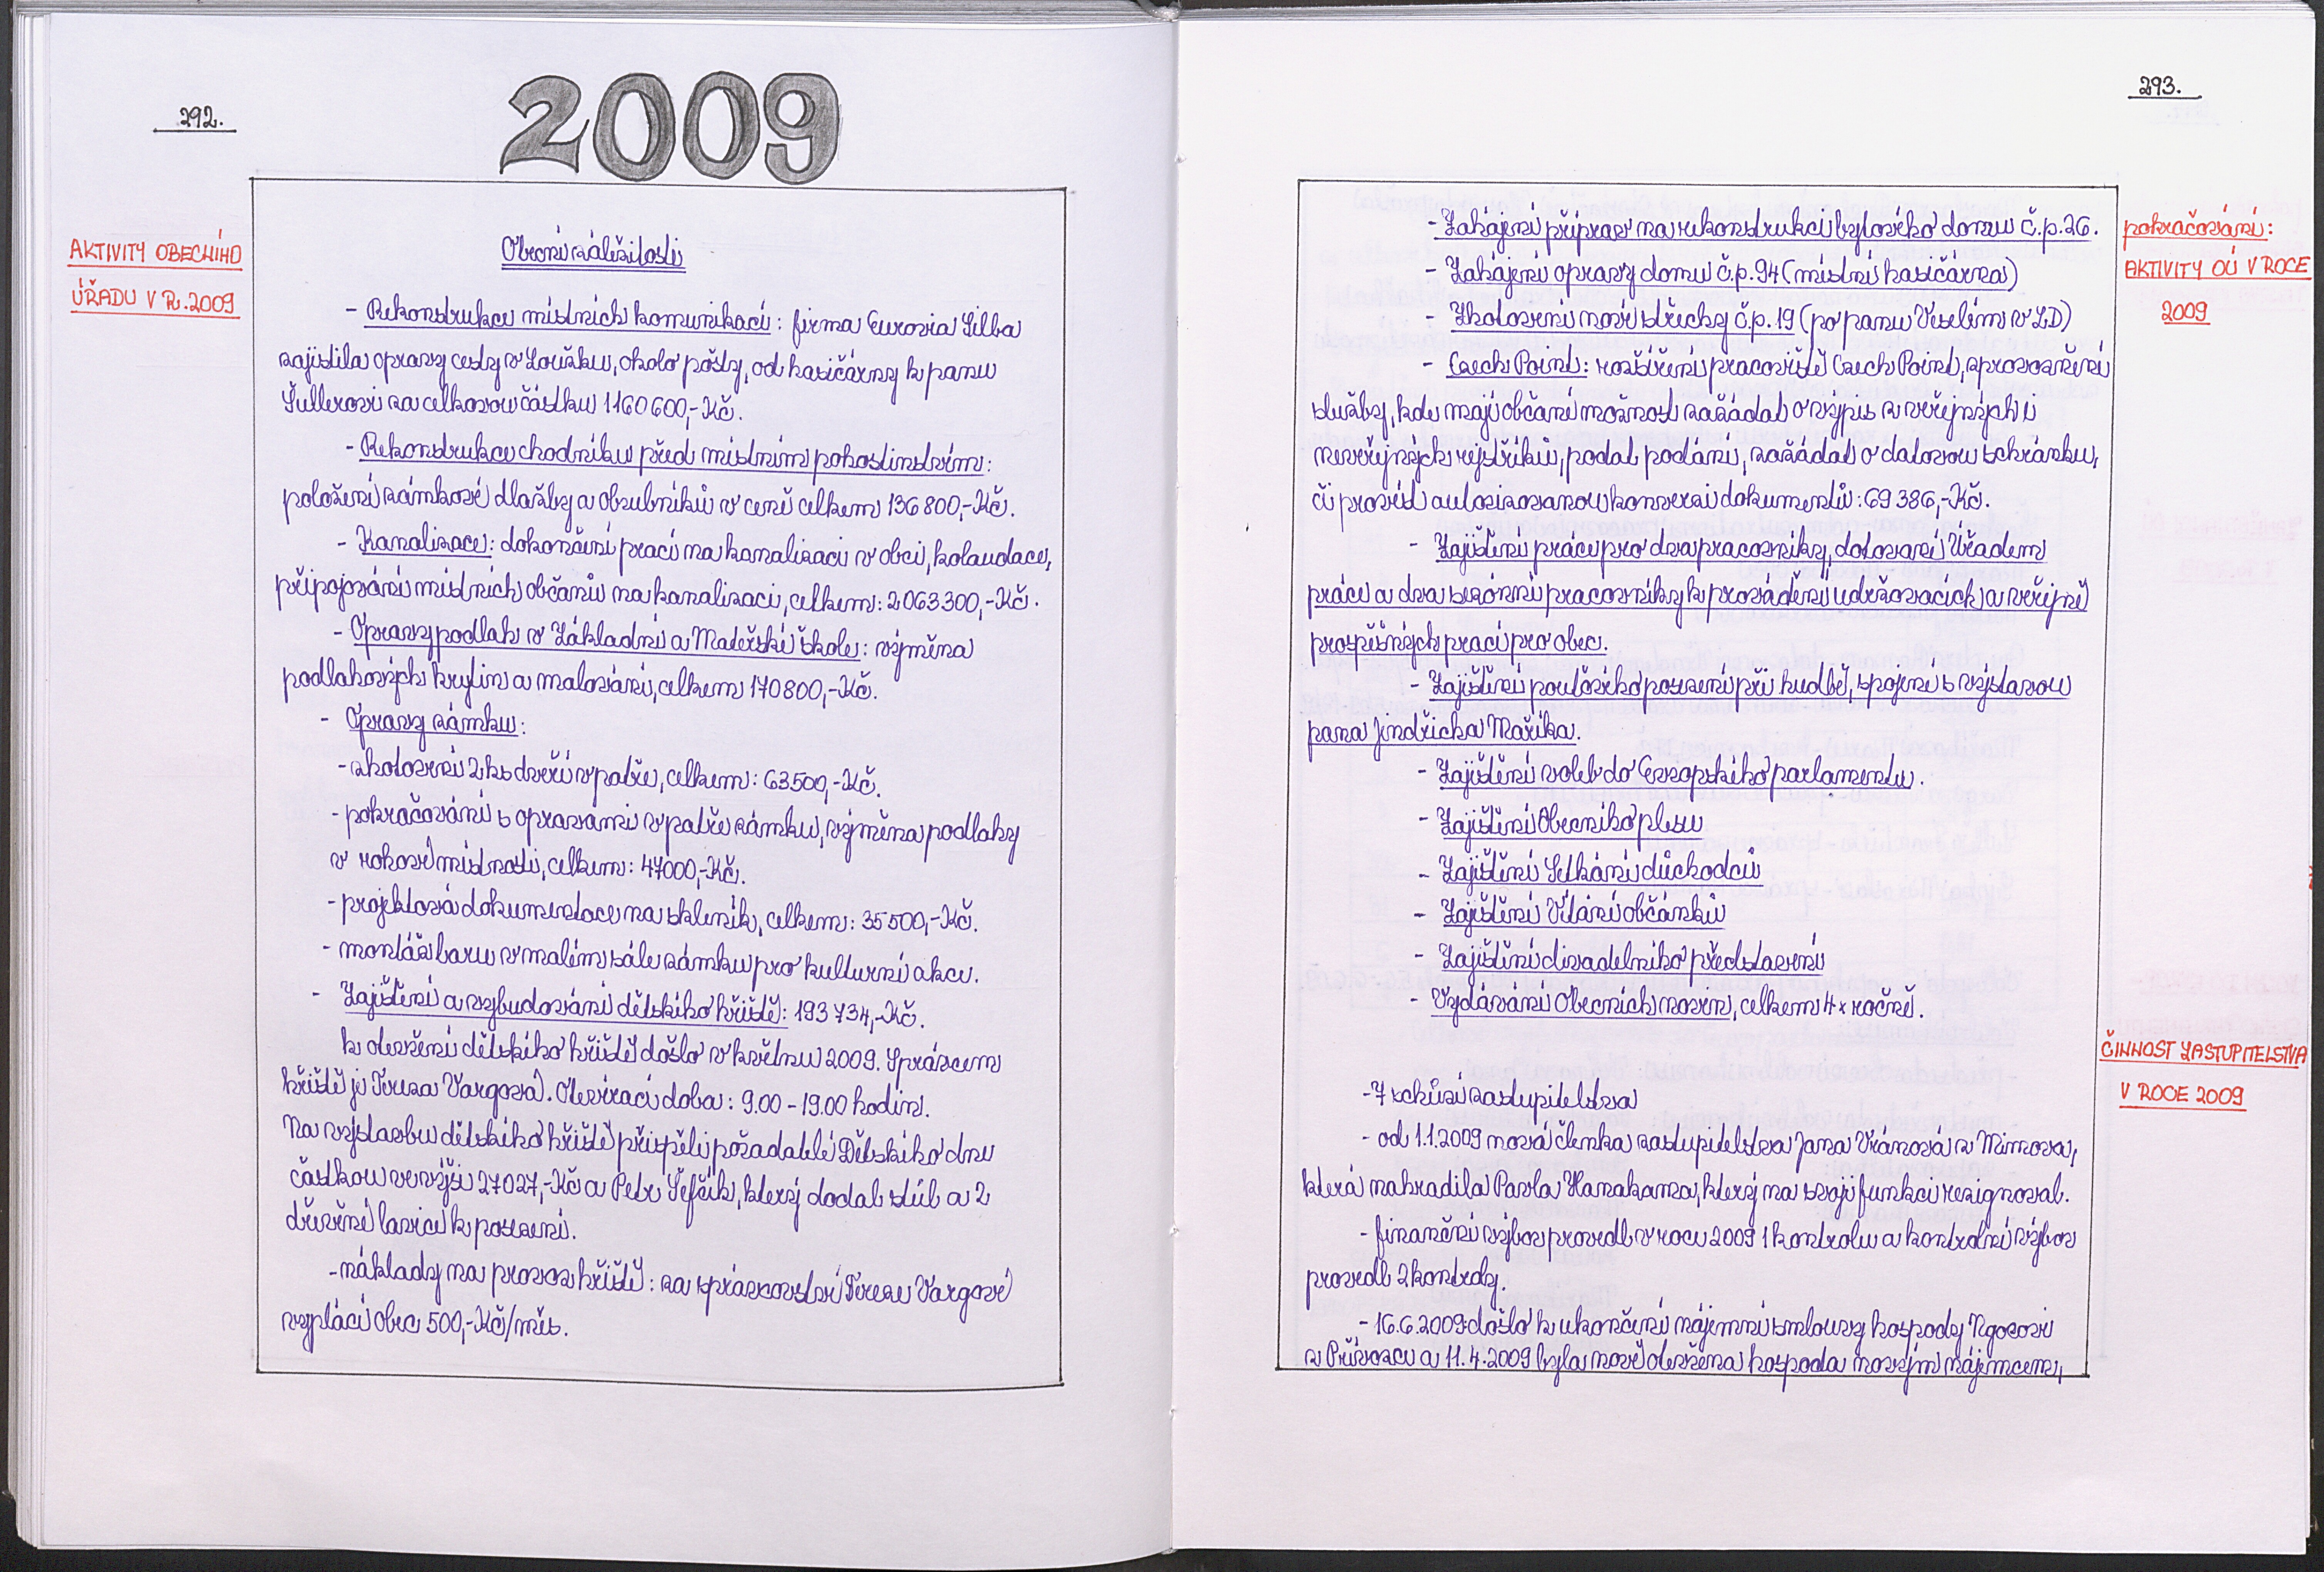 292.
2009
AKTIVITY OBECNÍHO
ÚŘADU V R. 2009
Obecní záležitosti
- Rekonstrukce místních komunikací: firma Eurovia Silba
zajistila opravy cesty v Loužku, okolo pošty, od hasičárny k panu
Šullerovi za celkovou částku 1160600,-Kč.
- Rekonstrukce chodníku před místním pohostinstvím:
položení zámkové dlažby a obrubníků v ceně celkem 136800,-Kč.
- Kanalizace: dokončení prací na kanalizaci v obci, kolaudace,
připojování místních občanů na kanalizaci, celkem: 2063300,-Kč.
- Opravy podlah v Základní a Mateřské škole: výměna
podlahových krytin a malování, celkem 170800,-Kč.
- Opravy zámku:
- zhotovení 2 ks dveří v patře, celkem: 63500,-Kč.
- pokračování s opravami v patře zámku, výměna podlahy
v rohové místnosti, celkem: 47000,-Kč.
- projektová dokumentace na skleník, celkem: 35500,-Kč.
- montáž baru v malém sále zámku pro kulturní akce.
- Zajištění a vybudování dětského hřiště: 193734,-Kč.
k otevření dětského hřiště došlo v květnu 2009. Správcem
hřiště je Tereza Vargová. Otevírací doba: 9.00 - 19.00 hodin.
Na výstavbu dětského hřiště přispěli pořadatelé Dětského dne
částkou ve výši 27027,-Kč a Petr Šefčík, který dodal stůl a 2
dřevěné lavice k posezení.
- náklady na provoz hřiště: za správcovství Tereze Vargové
vyplácí obec 500,-Kč/měs.
293.
pokračování:
AKTIVITY OÚ V ROCE
2009
- Zahájení příprav na rekonstrukci bytového domu č.p.26.
- Zahájení opravy domu č.p.94 (místní hasičárna)
- Zhotovení nové střechy č.p.19 (po panu Veselém v LD)
- Czech Point: rozšíření pracoviště Czech Point, zprovoznění
služby, kde mají občané možnost zažádat o výpis z veřejných i
neveřejných rejstříků, podat podání, zažádat o datovou schránku,
či provést autorizovanou konverzi dokumentů: 69386,-Kč.
- Zajištění práce pro dva pracovníky, dotovaní Úřadem
práce a dva sezónní pracovníky k provádění udržovacích a veřejně
prospěšných prací pro obec.
- Zajištění pouťového posezení při hudbě, spojené s výstavou
pana Jindřicha Maříka.
- Zajištění voleb do Evropského parlamentu.
- Zajištění Obecního plesu
- Zajištění Setkání důchodců
- Zajištění Vítání občánků
- Zajištění divadelního představení
- Vydávání Obecních novin, celkem 4x ročně.
ČINNOST ZASTUPITELSTVA
V ROCE 2009
- 7 schůzí zastupitelstva
- od 1.1.2009 nová členka zastupitelstva Jana Vránová z Mimova,
která nahradila Pavla Hanakama, který na svoji funkci rezignoval.
- finanční výbor provedl v roce 2009 1 kontrolu a kontrolní výbor
provedl 2 kontroly.
- 16.6.2009 došlo k ukončení nájemní smlouvy hospody Ngocovi
z Přívozce a 11.4.2009 byla nově otevřena hospoda novým nájemcem,